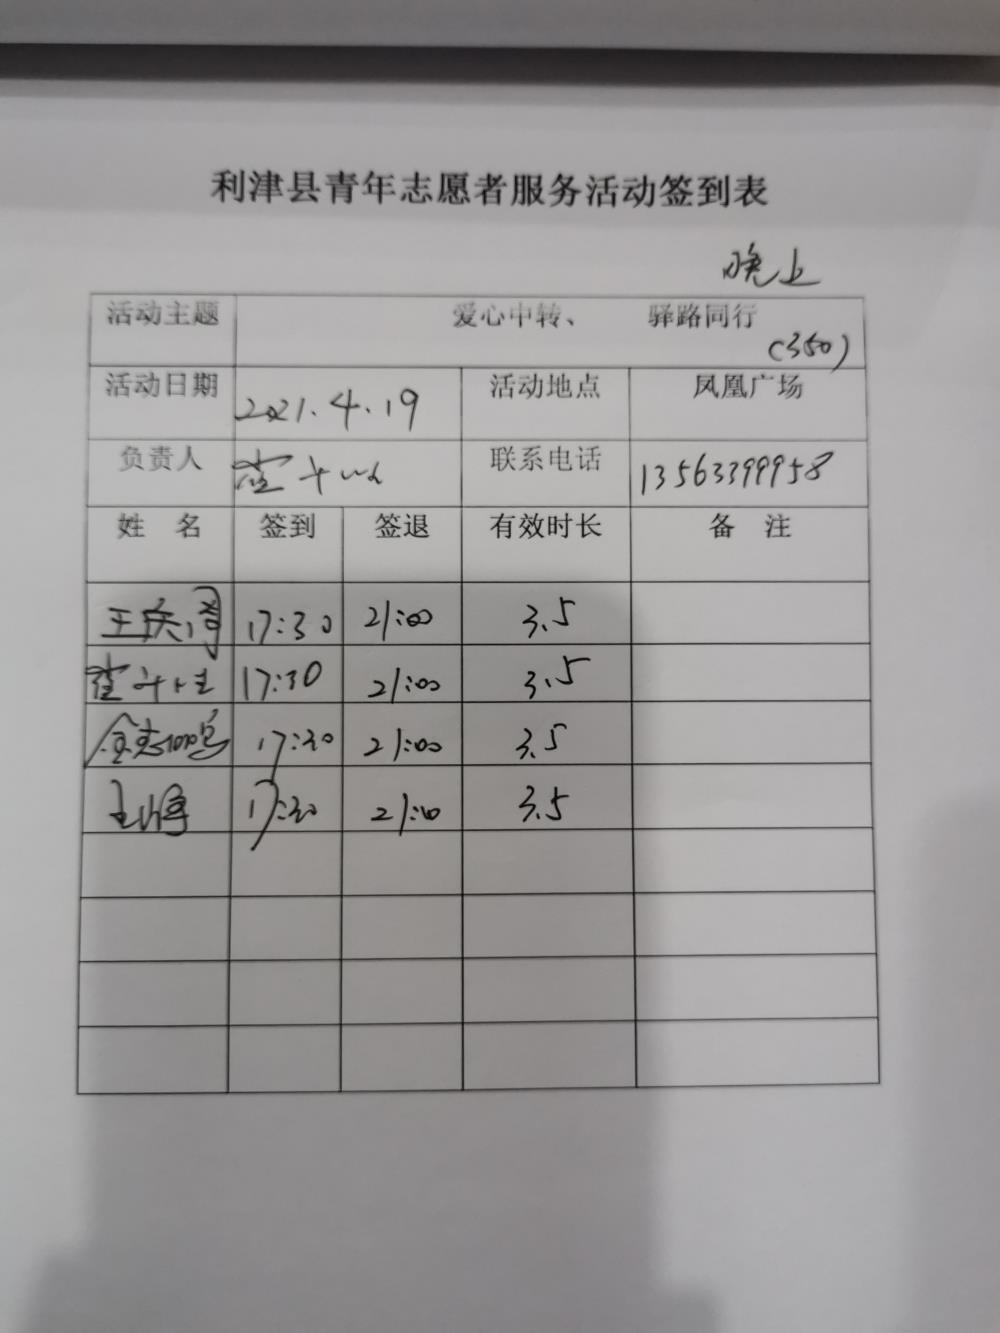 利津县青年志愿者服务活动签到表
晚上
活动主题 爱心中转、 驿路同行
(350)
活动日期 2021.4.19 活动地点 凤凰广场
负责人 联系电话 13563399958
姓 名 签到 签退 有效时长 备 注
17:30 21:00 3.5
17:30 21:00 3.5
17:30 21:00 3.5
17:30 21:00 3.5